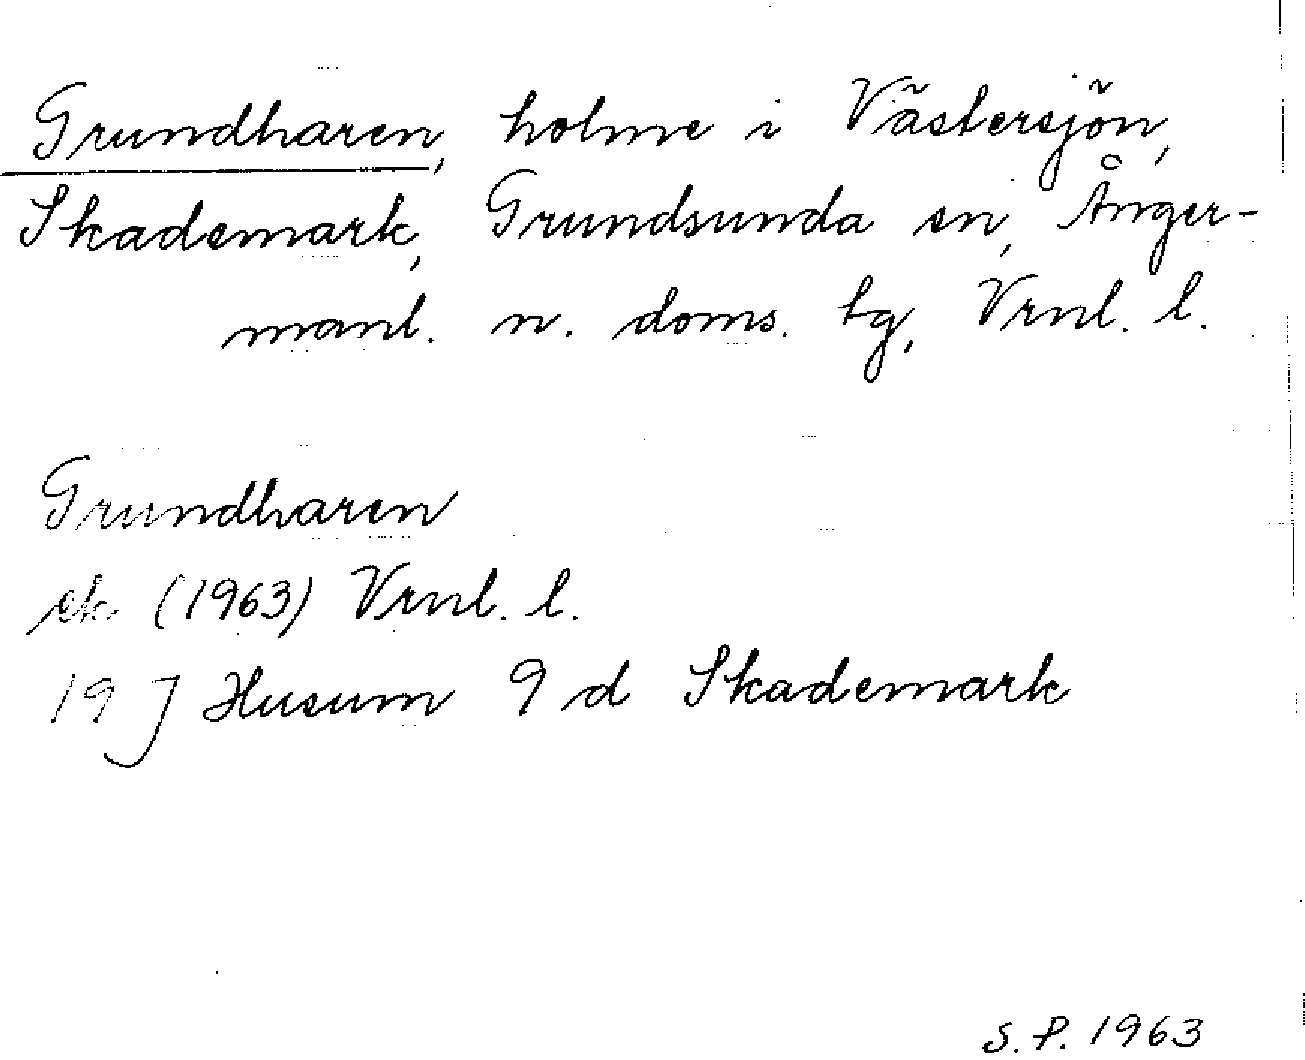 Grundharen, holme i Västersjön,
Skademark, Grundsunda sn, Ånger-
manl. n. doms. tg, Vrnl. l.
Grundharen
ek (1963) Vrnl. l.
19 J Husum 9 d Skademark
S. P. 1963